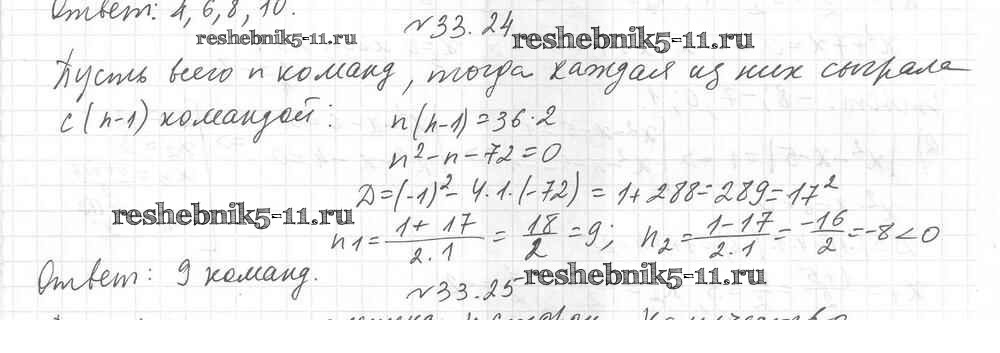 Ответ: 4, 6, 8, 10.
№33.24
reshebnik5-11.ru reshebnik5-11.ru
Пусть всего n команд, тогда каждая из них сыграла
с (n-1) командой: n(n-1)=36·2
n²-n-72=0
D=(-1)²-4·1·(-72)=1+288=289=17²
reshebnik5-11.ru
n1=1+17/2·1=18/2=9; n2=1-17/2·1=-16/2=-8<0
Ответ: 9 команд.
reshebnik5-11.ru
№33.25